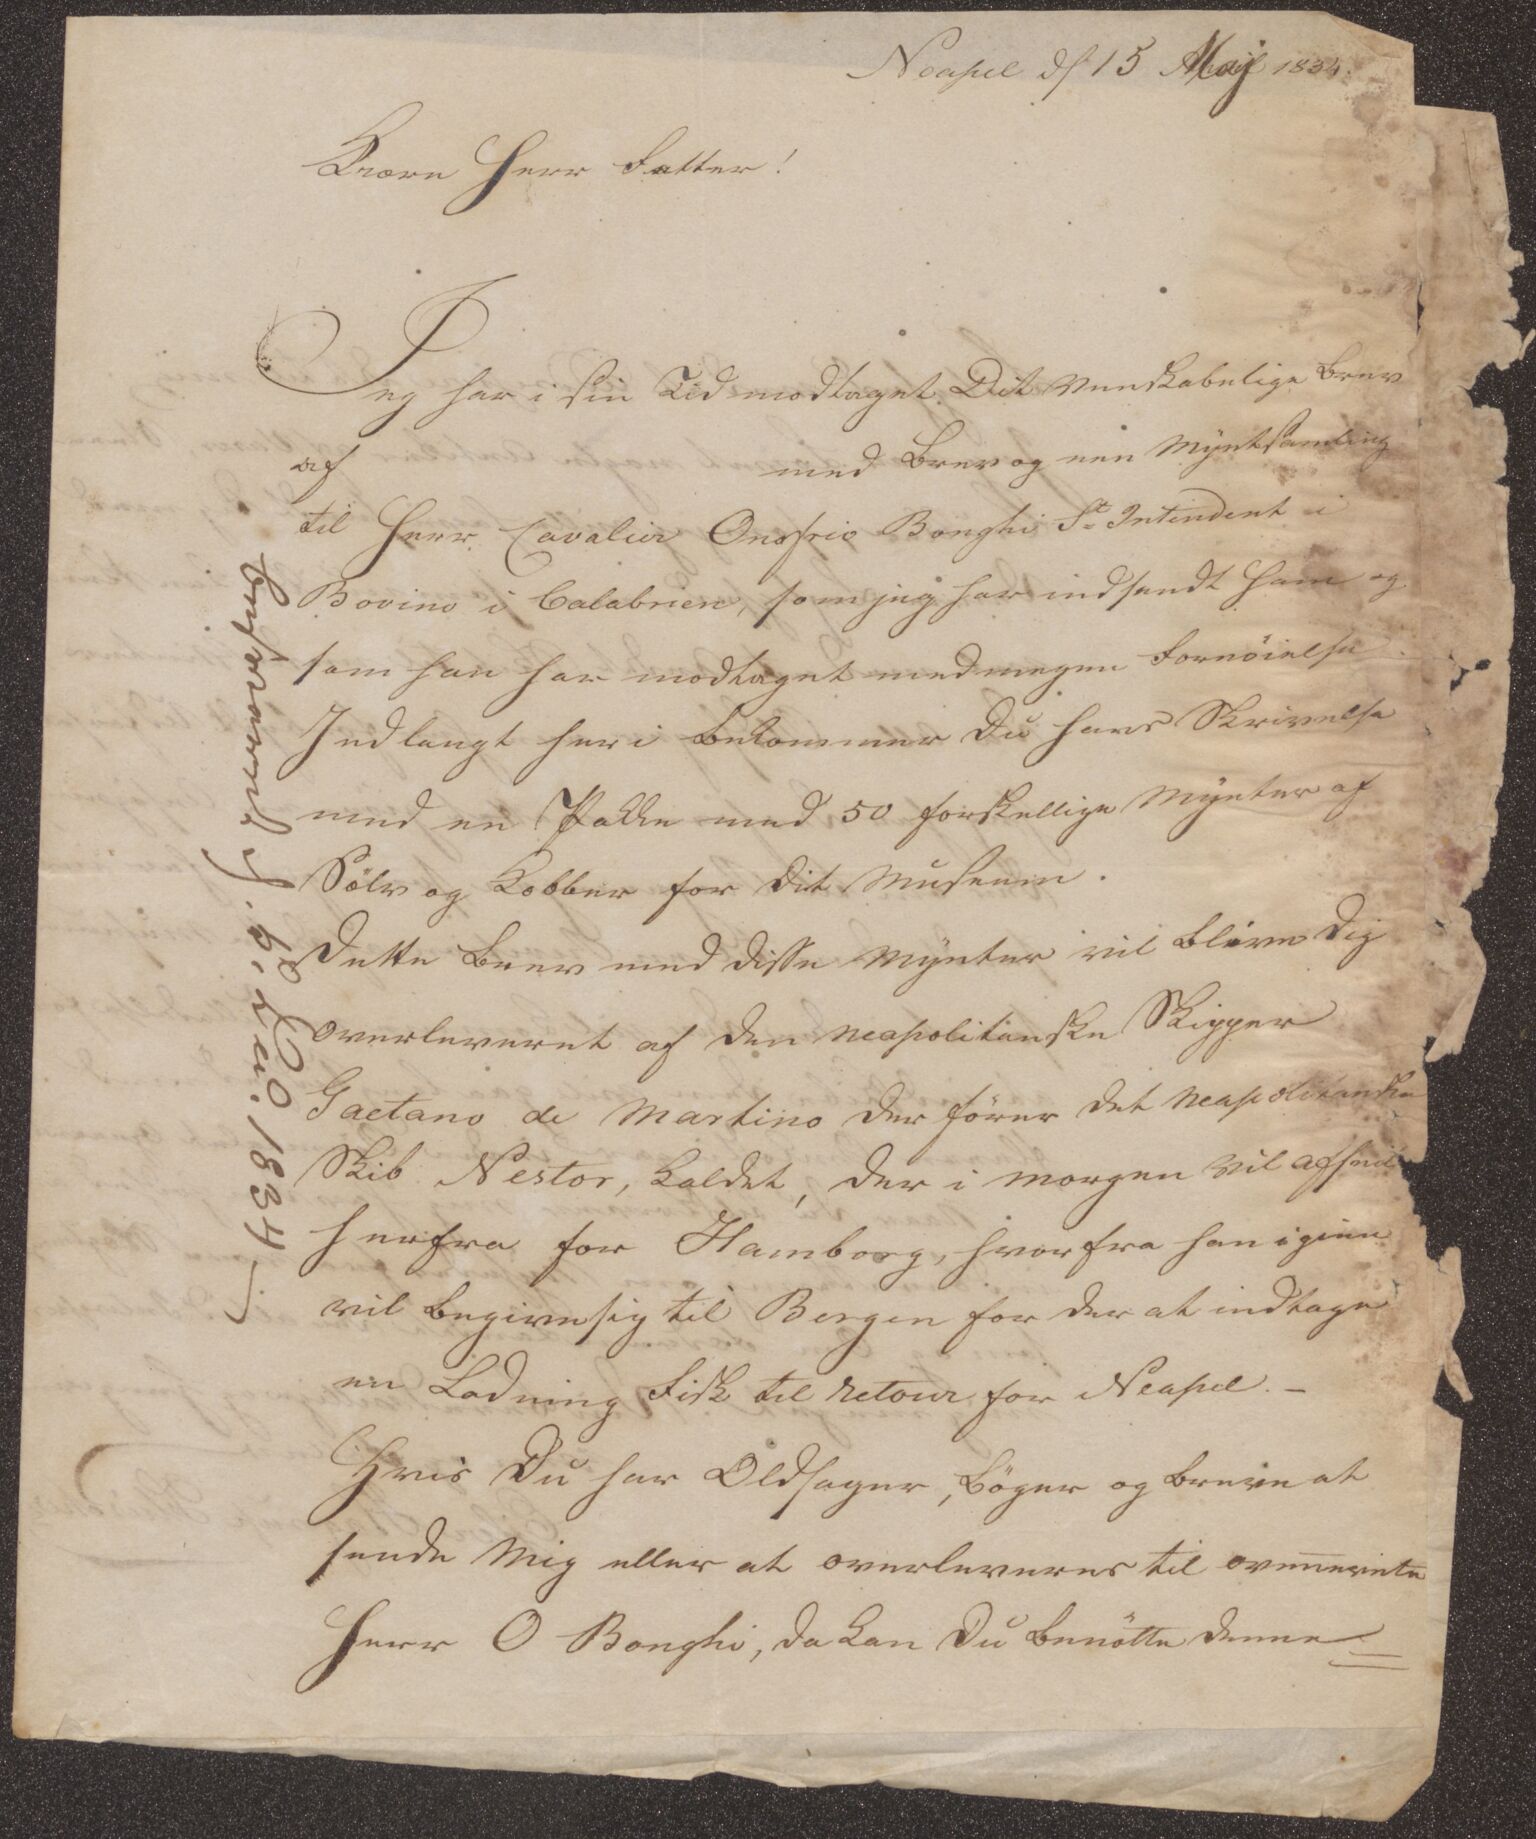 Neapel d/ 15 Maij 1834.
Kiære Herr Fatter!
Jeg har i sin Tid modtaget Dit venskabelige Brev
af med Brev og een Myntsamling
til Herr Cavalier Onofrio Bonghi St Intendent i
Bovino i Calabrien, som jeg har indsendt ham og
som han har modtaget med megen Fornöielse.
Indlangt heri bekommer Du hans Skrivelse
med en Pakke med 50 forskellige Mynter af
Sölv og Kobber for dit Museum.
Dette Brev med disse Mynter vil blive Dig
overleveret af den neapolitanske Skipper
Gaetano de Martino der förer det neapolitanske
Skib Nestor, kaldet, der i morgen vil afseile
herfra for Hamborg, hvorfra han igien
vil begive sig til Bergen for der at indtage
en Ladning Fisk til retour for Neapel. –
Hvis Du har Oldsager, Böger og Breve at
sende mig eller at overleveres til ovennevnte
Herr O Bonghi, da kan Du benötte denne
besvaret d. 1834